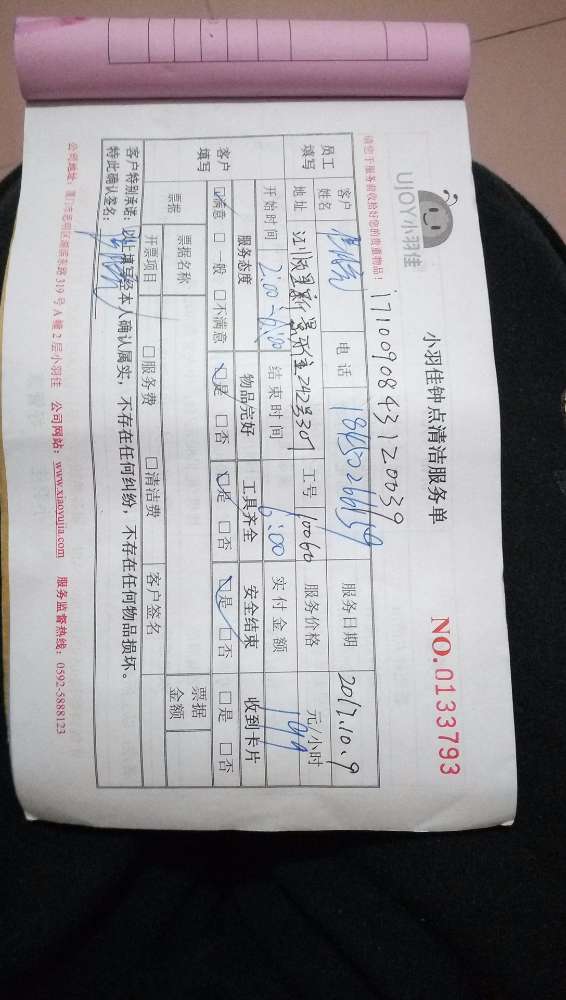 UJOY小羽佳
小羽佳钟点清洁服务单
NO.0133793
请您于服务前收拾好您的贵重物品!
1710090843120039
员工填写
客户姓名
电话
服务日期 2017.10.9
地址
242号307
工号 10060
服务价格 元/小时
开始时间 2:00-6:00
结束时间 6:00
实付金额
客户填写
服务态度 物品完好 工具齐全 安全结束 收到卡片
☑满意 □一般 □不满意 ☑是 □否 ☑是 □否 ☑是 □否 □是 □否
票据
票据名称
票据金额
开票项目 □服务费 □清洁费 客户签名
客户特别承诺：以上填写经本人确认属实，不存在任何纠纷，不存在任何物品损坏。
特此确认签名：
公司地址：厦门市思明区湖滨东路319号A幢2层小羽佳 公司网站：www.xiaoyujia.com 服务监督热线：0592-5888123